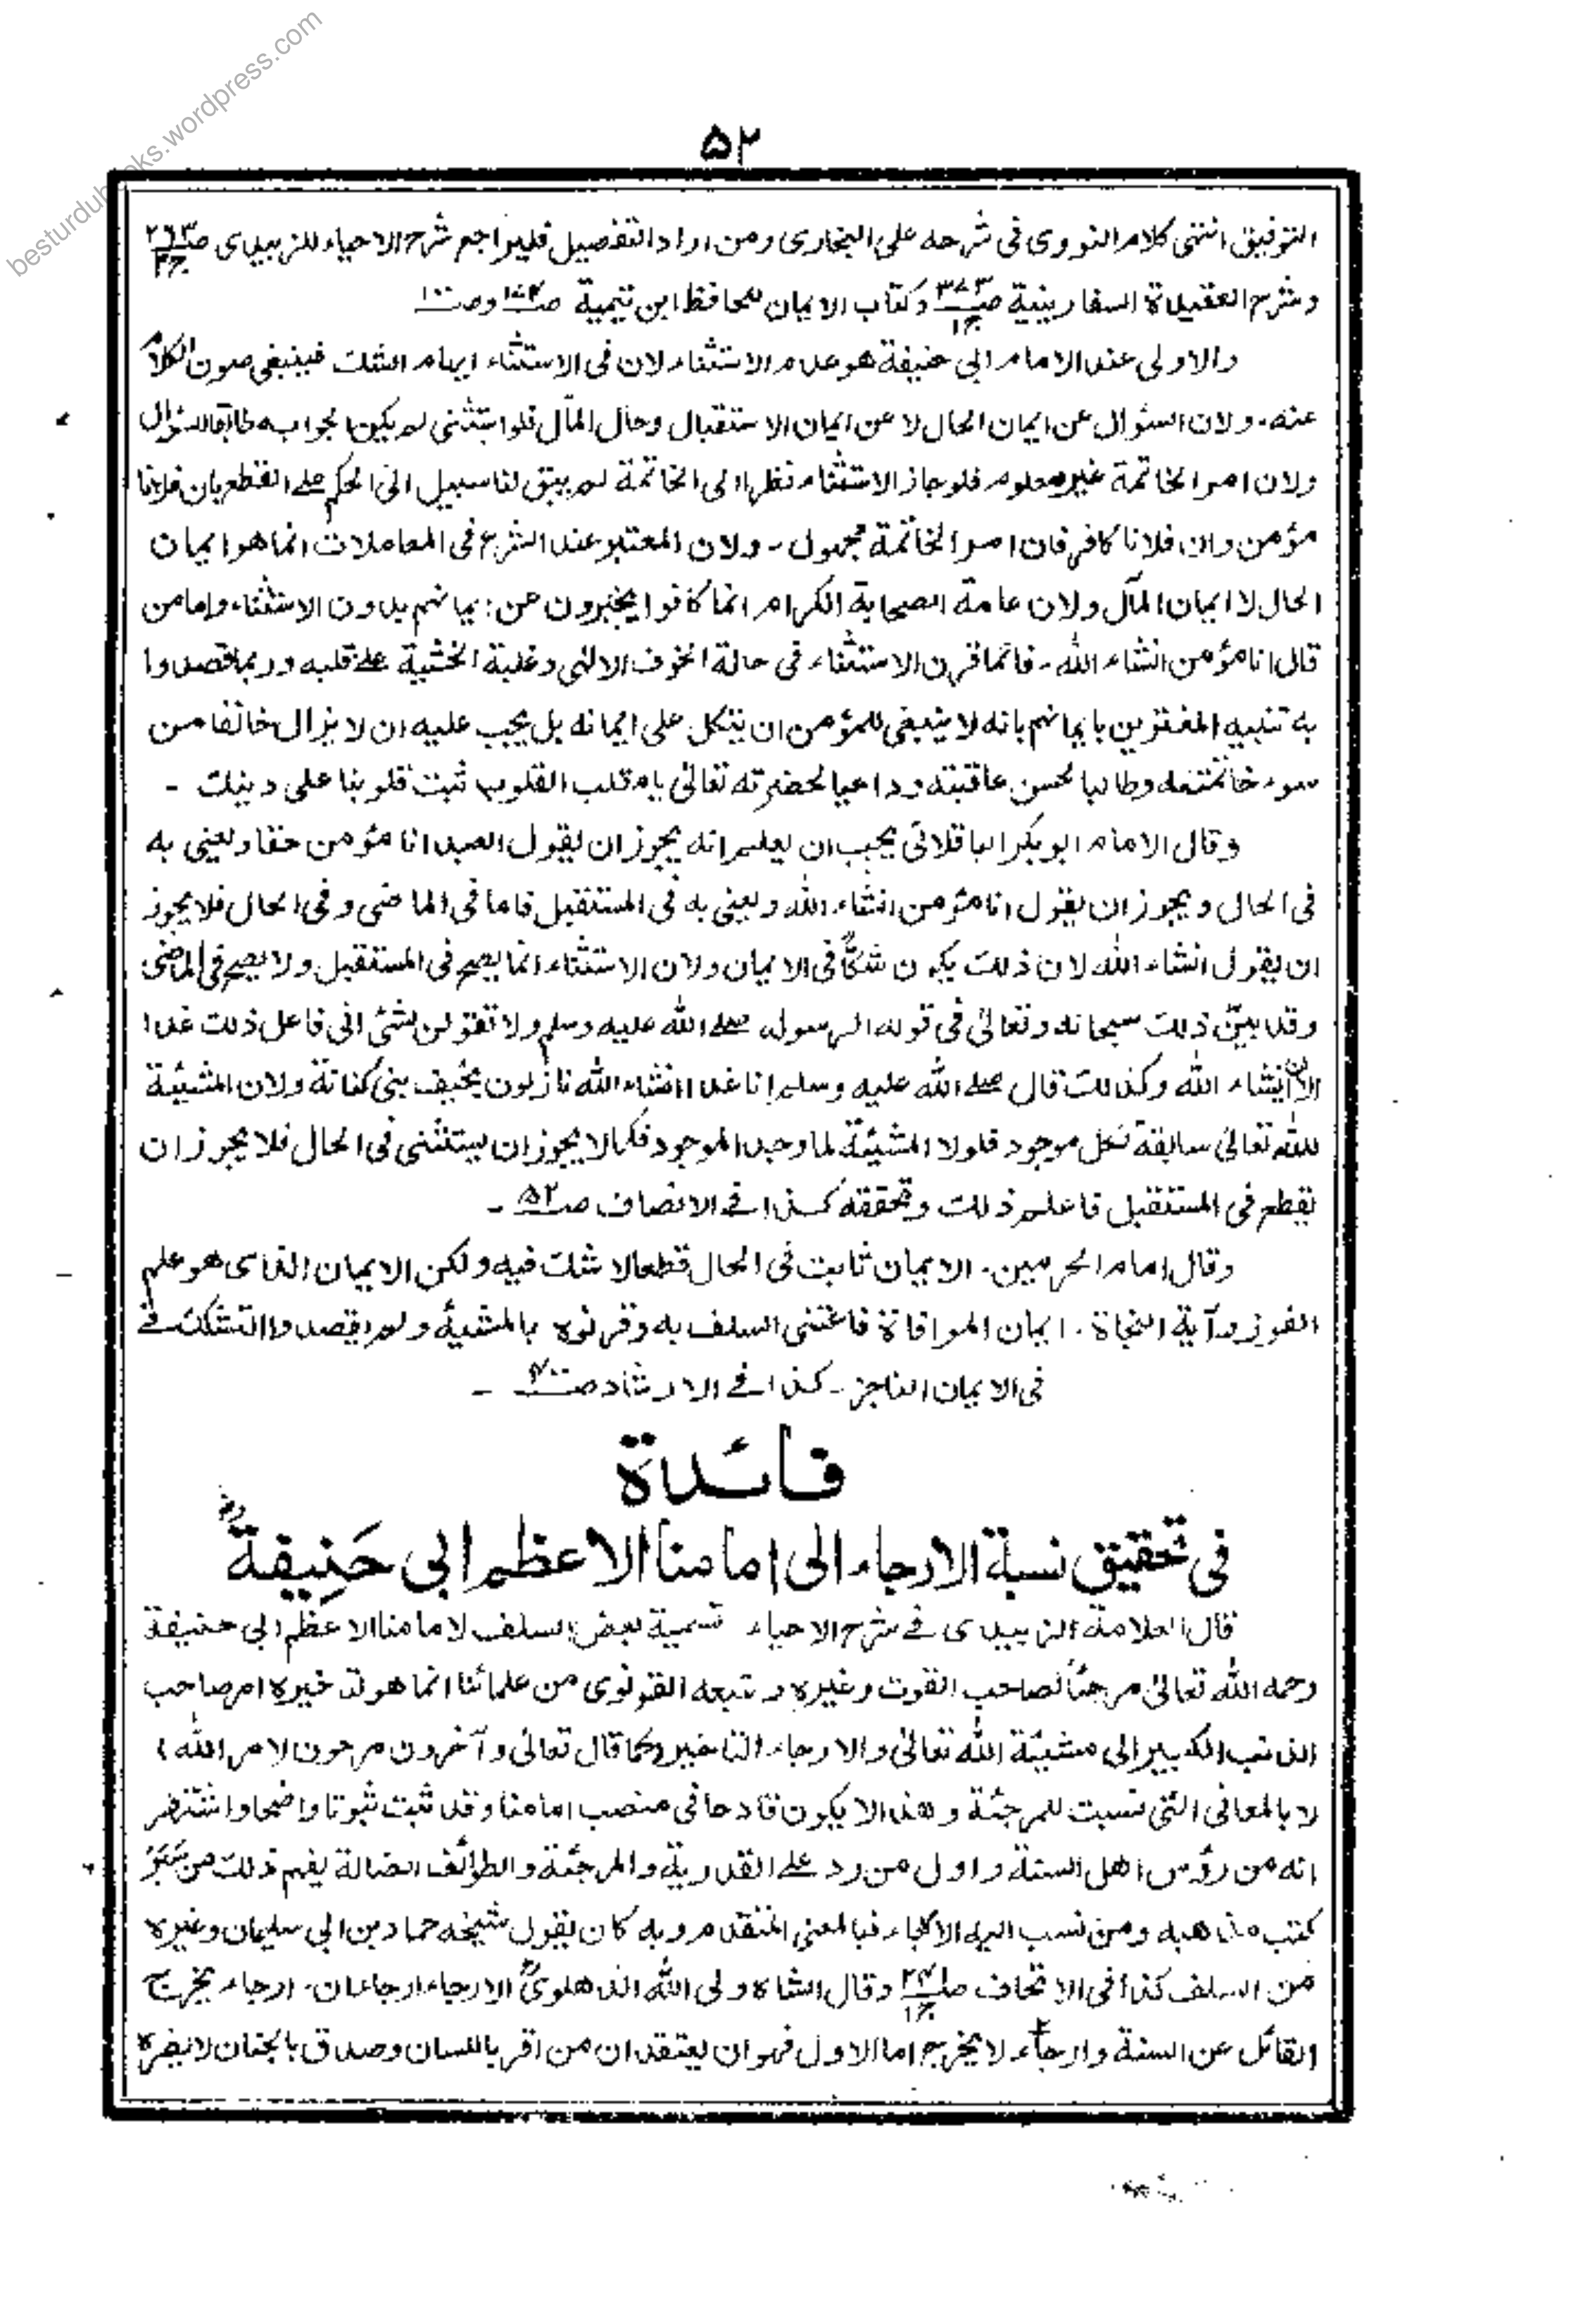 besturdubooks.wordpress.com
۵۲
التوفيق انتهى كلام النووى فى شرحه على البخارى ومن اراد التفصيل فليراجع شرح الاحياء للزبيدى صـ۲۶۳ ج۲
وشرح العقيدة السفارينية صـ۳۸۳ ج۱ وكتاب الايمان للحافظ ابن تيمية صـ۱۷۲ وصـ۱۰۰
والاولى عند الامام ابى حنيفة هو عدم الاستثناء لان فى الاستثناء ايهام الشك فينبغى صون الكلام
عنه۔ ولان السؤال عن ايمان الحال لا عن ايمان الاستقبال وحال المآل فلو استثنى لم يكن الجواب مطابقا للسؤال
ولان امر الخاتمة غير معلوم فلو جاز الاستثناء نظرا الى الخاتمة لم يبق لنا سبيل الى الحكم على القطع بان فلانا
مؤمن وان فلانا كافر فان امر الخاتمة مجهول۔ ولان المعتبر عند الشرع فى المعاملات انما هو ايمان
الحال لا ايمان المآل ولان عامة الصحابة الكرام انما كانوا يخبرون عن ايمانهم بدون الاستثناء واما من
قال انا مؤمن انشاء الله۔ فانما قرن الاستثناء فى حالة الخوف الالهى وغلبة الخشية على قلبه وربما قصدوا
به تنبيه المغترين بايمانهم بانه لا ينبغى للمؤمن ان يتكل على ايمانه بل يجب عليه ان لا يزال خائفا من
سوء خاتمته وطالبا لحسن عاقبته وداعيا لحضرته تعالى يا مقلب القلوب ثبت قلوبنا على دينك ۔
وقال الامام ابو بكر الباقلانى يجب ان يعلم انه يجوز ان يقول العبد انا مؤمن حقا ويعنى به
فى الحال ويجوز ان يقول انا مؤمن انشاء الله ويعنى به فى المستقبل فاما فى الماضى وفى الحال فلا يجوز
ان يقول انشاء الله لان ذلك يكون شكًا فى الايمان ولان الاستثناء انما يصح فى المستقبل ولا يصح فى الماضى
وقد بيّن ذلك سبحانه وتعالى فى قوله الرسوله صلى الله عليه وسلم ولا تقولن لشئ انى فاعل ذلك غدا
الا ان يشاء الله وكذلك قال صلى الله عليه وسلم انا غدا انشاء الله نازلون بخيف بنى كنانة ولان المشيئة
لله تعالى سابقة لكل موجود فلولا المشيئة لما وجد الموجود فكما لا يجوز ان يستثنى فى الحال فلا يجوز ان
يقطع فى المستقبل فاعلم ذلك وتحققه كذا فى الانصاف صـ۵۲ ۔
وقال امام الحرمين۔ الايمان ثابت فى الحال قطعا لا شك فيه ولكن الايمان الذى هو علم
الفوز وآية النجاة۔ ايمان الموافاة فاعتنى السلف به وقرنوه بالمشيئة ولم يقصدوا التشكك فى
فى الايمان الناجز۔ كذا فى الارشاد صـ۴۰۰ ۔
فائدة
فى تحقيق نسبة الارجاء الى امامنا الاعظم ابى حَنِيفة رح
قال العلامة الزبيدى فى شرح الاحياء تسمية بعض السلف لامامنا الاعظم ابى حنيفة
رحمه الله تعالى مرجئا لصاحب القوت وغيره وتبعه القونوى من علمائنا انما هو لتاخيره امر صاحب
الذنب الكبير الى مشيئة الله تعالى والارجاء التاخير (كما قال تعالى وآخرون مرجون لامر الله)
لا بالمعانى التى نسبت للمرجئة وهذا لا يكون قادحا فى منصب امامنا وقد ثبت ثبوتا واضحا واشتهر
انه من رؤس اهل السنة واول من رد على القدرية والمرجئة والطوائف الضالة يفهم ذلك من سبر
كتب مذهبه ومن نسب اليه الارجاء فبالمعنى المتقدم وبه كان يقول شيخه حماد بن ابى سليمان وغيره
من السلف كذا فى الاتحاف صـ۲۴۲ ج۱ وقال الشاه ولى الله الدهلوىؒ الارجاء ارجاءان۔ ارجاء يخرج
القائل عن السنة وارجاء لا يخرج اما الاول فهو ان يعتقد ان من اقر باللسان وصدق بالجنان لا يضره